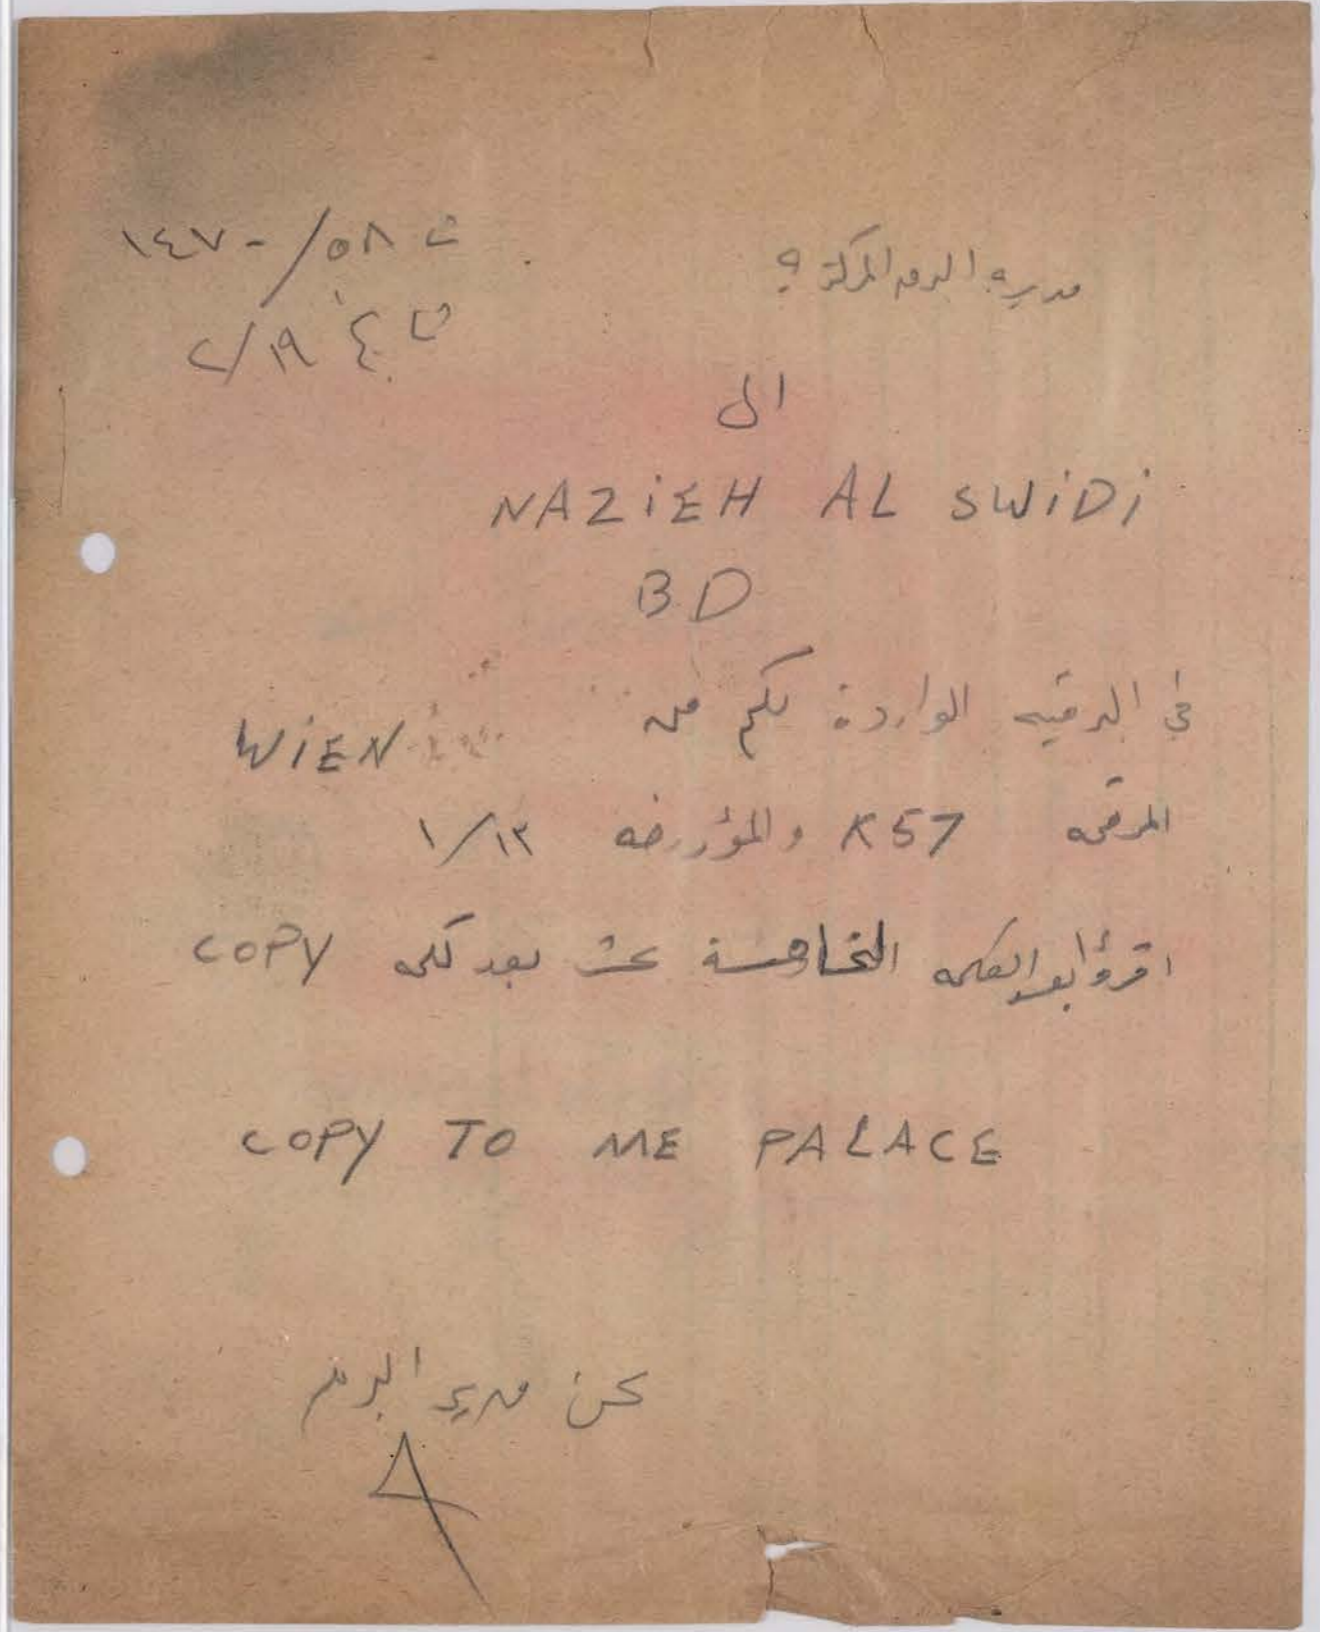 مديرية البرق المركزية
ت ٥٨/ ١٤٧٠
تاريخ ١٩/٢
الى
NAZiEH AL SWiDi
BD
في البرقيه الواردة لكم من WiEN
المرقمه K57 والمؤرخه ١٣/١
اقرؤا بعد الكلمه الخامسة عشر بعد كلمه COPY
COPY TO ME PALACE
عن مدير البرق